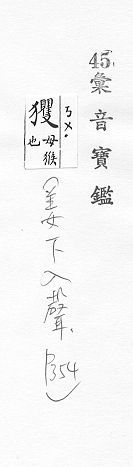 45.彙音寶鑑
玃 ㄋㄨˊ
母猴
也
(姜下入聲. P354)